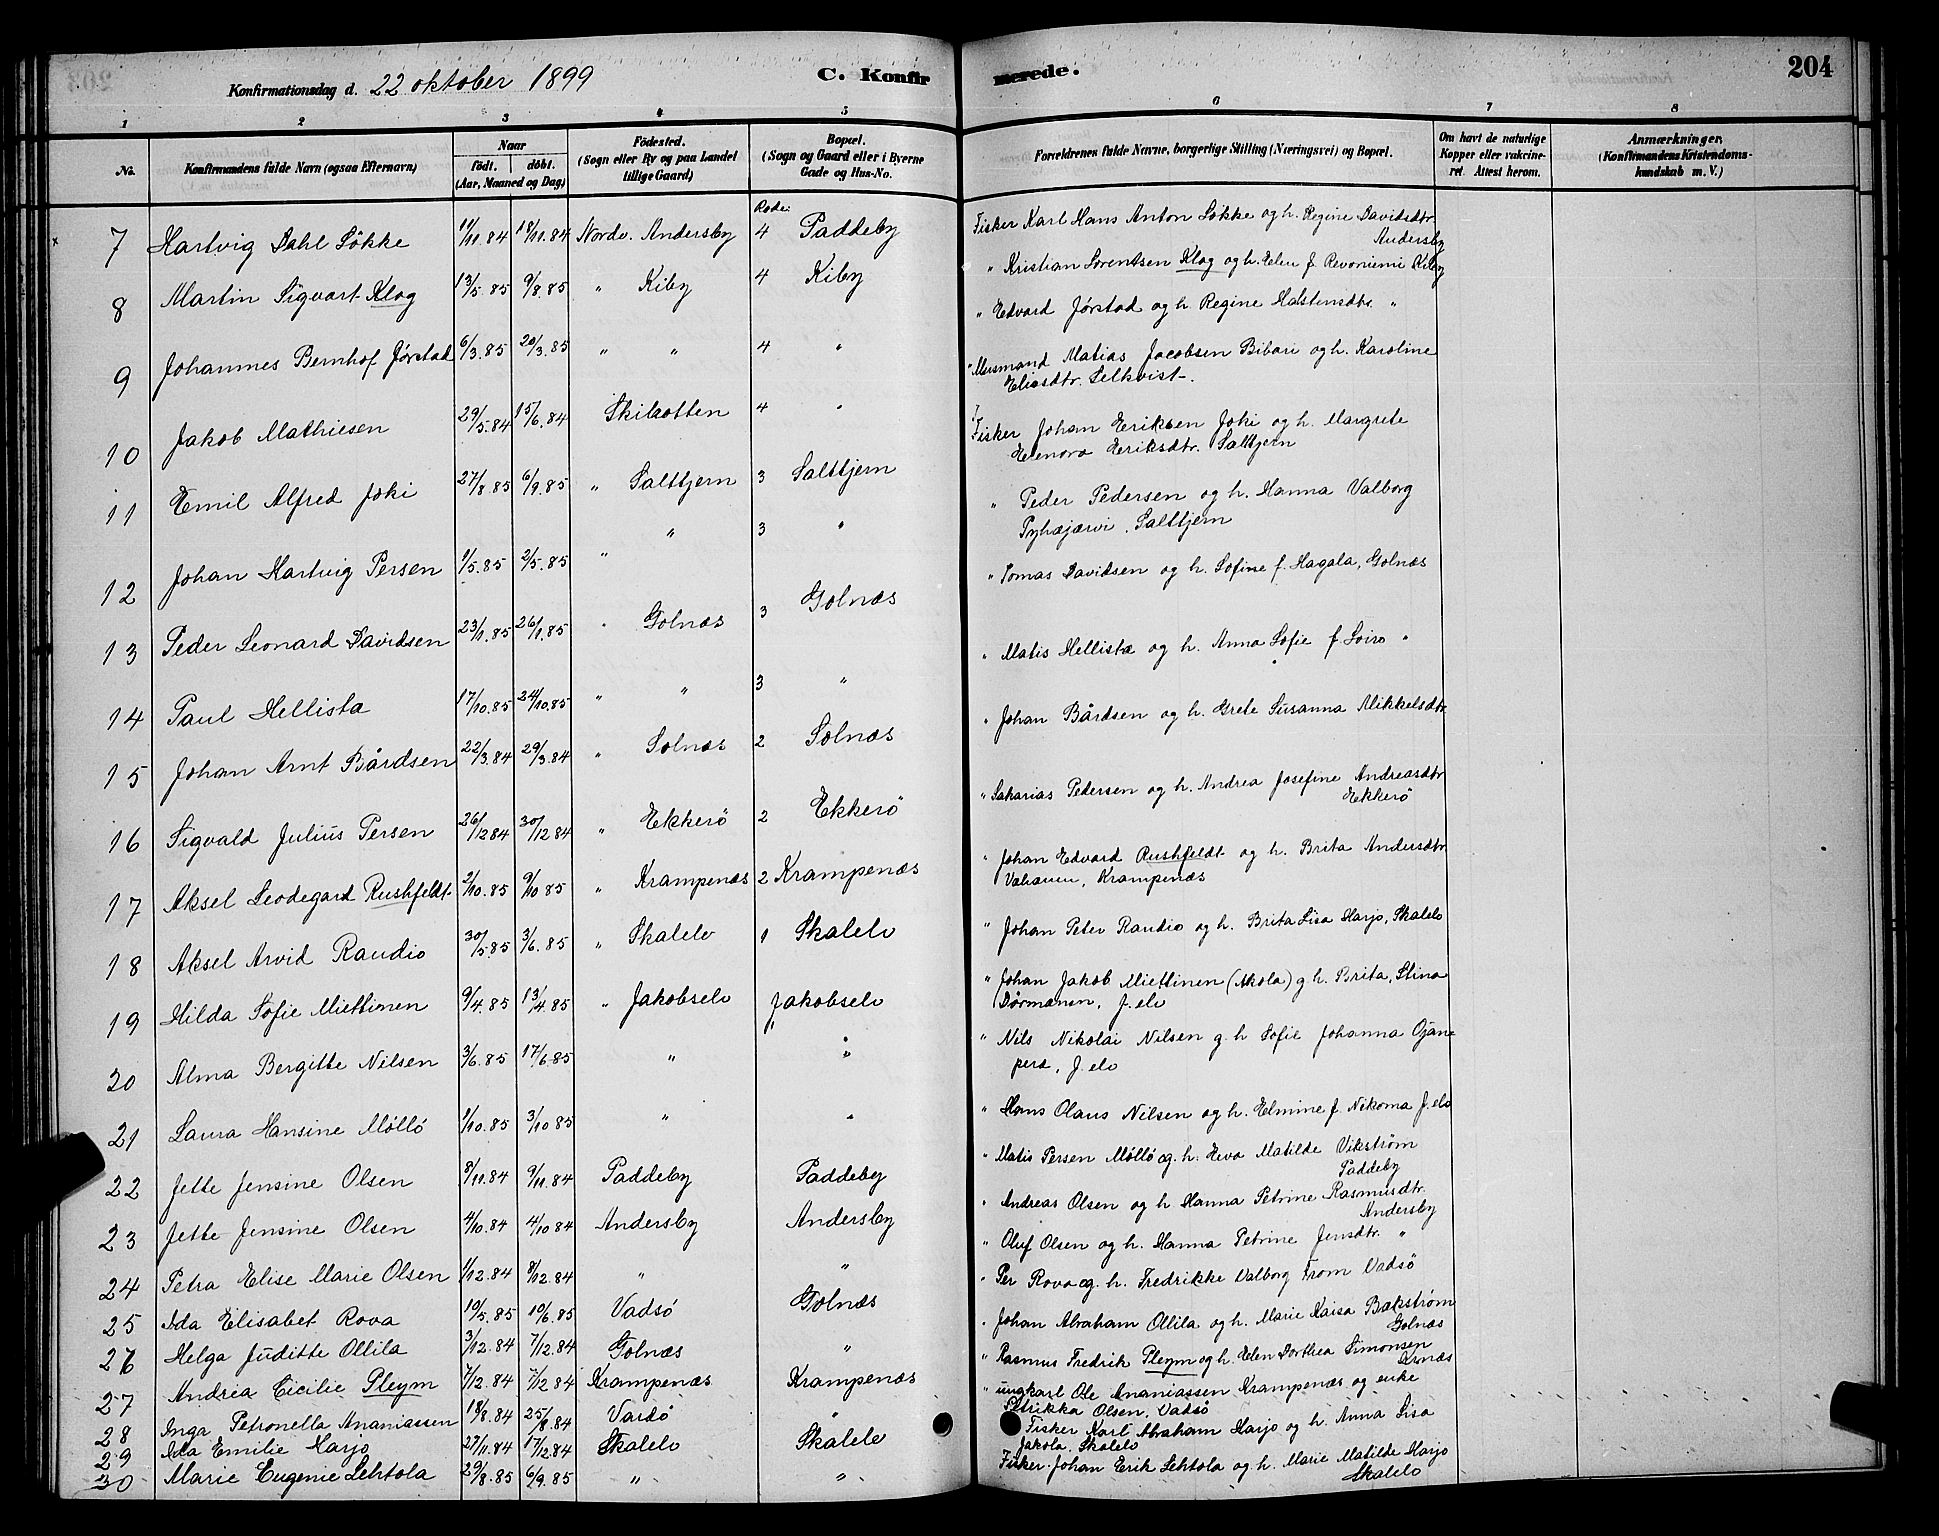 204
Konfirmationsdag d. 22 oktober 1899
C. Konfirmerede.
1 2 3 4 5 6 7 8
No.
Konfirmandens fulde Navn (ogsaa Efternavn)
Naar
født. døbt.
(Aar, Maaned og Dag)
Fødested.
(Sogn eller By og paa Landet
tillige Gaard)
Bopæl.
(Sogn og Gaard eller i Byerne
Gade og Hus-No.
Forældrenes fulde Navne, borgerlige Stilling (Næringsvei) og Bopæl.
Om havt de naturlige
Kopper eller vakcine-
ret. Attest herom.
Anmærkninger,
(Konfirmandens Kristendoms-
kundskab m. V.)
Rode:
7 Hartvig Dahl Løkke 11/11.84 18/11.84 Nordv. Andersby 4 Paddeby
Fisker Karl Hans Anton Løkke og h. Regine Davidsdtr.
Andersby
8 Martin Sigvart Klog 13/5.85 9/8.85 " Kiby 4 Kiby
" Kristian Sørentsen Klog og h. Elen f. Revoniemi Kiby
9 Johannes Bernhof Jørstad 6/3.85 20/3.85 " " 4 "
" Edvard Jørstad og h. Regine Halstensdtr. "
10 Jakob Mathiesen 29/5.84 15/6.84 Skibsotten 4 "
Matias Jacobsen Bibari og h. Karoline
Eliasdtr. Selkvist.
11 Emil Alfred Joki 27/8.85 6/9.85 " Saltjern 3 Saltjern
Fisker Johan Eriksen Joki og h. Margrete
Elenora Eriksdtr. Saltjern
12 Johan Hartvig Persen 1/5.85 2/5.85 " " 3 "
" Peder Pedersen og h. Hanna Valborg
Pyhæjærvi. Saltjern
13 Peder Leonard Davidsen 23/1.85 26/1.85 " Golnæs 3 Golnæs
" Tomas Davidsen og h. Sofine f. Hagala, Golnæs
14 Paul Hellista 17/10.85 24/10.85 " " 3 "
" Matis Hellista og h. Anna Sofie f. Soiro "
15 Johan Arnt Bårdsen 22/3.84 29/3.84 " Golnæs 2 Golnæs
" Johan Bårdsen og h. Grete Susanna Mikkelsdtr
16 Sigvald Julius Persen 26/12 84 30/12 84 " Ekkerø 2 Ekkerø
" Sakarias Pedersen og h. Andrea Josefine Andreasdtr
Ekkerø
17 Aksel Leodegard Rushfeldt 2/10.85 9/10 85 " Krampenæs 2 Krampenæs
" Johan Edvard Rushfeldt og h. Brita Andersdtr
Krampenæs
18 Aksel Arvid Raudio 30/5.85 3/6.85 " Skalelv 1 Skalelv
" Johan Peter Raudio og h. Brita Lisa Harjo, Skalelv
19 Hilda Sofie Miettinen 9/4.85 13/4.85 " Jakobselv Jakobselv
" Johan Jakob Miettinen (Akola) g h. Brita, Stina
Dørmanen, J. elv
20 Alma Bergitte Nilsen 3/6.85 17/6.85 " "
" Nils Nikolai Nilsen g. h Sofie Johanna Ojan-
pera, J. elv
21 Laura Hansine Møllø 1/10.85 3/10 85 " "
" Hans Olaus Nilsen og h. Elmine f. Nikoma J. elv
22 Jette Jensine Olsen 8/11.84 9/11.84 Paddeby Paddeby
" Matis Persen Møllø og. h. Eva Matilde Vikstrøm
Paddeby
23 Jette Jensine Olsen 4/10.84 4/10 84 Andersby Andersby
" Andreas Olsen og h Hanna Petrine Rasmusdtr.
Andersby
24 Petra Elise Marie Olsen 1/12.84 8/12.84 " "
" Oluf Olsen og h. Hanna Petrine Jensdtr. "
25 Ida Elisabet Rova 10/5.85 10/6.85 Vadsø Golnæs
" Per Rova og. h. Fredrikke Valborg From Vadsø
26 Helga Juditte Ollila 3/12.84 7/12.84 Golnæs "
" Johan Abraham Ollila og h. Marie Kaisa Bækstrøm
Golnæs
27 Andrea Cicilie Pleym 7/12.84 7/12 84 Krampenæs Krampenæs
" Rasmus Fredrik Pleym og h. Elen Dorthea Simonsen
28 Inga Petronella Ananiassen 18/8.84 25/8.84 Vardø "
" ungkarl Ole Ananiassen Krampenæs og enke
Petrikka Olsen, Vadsø
29 Ida Emilie Harjo 27/11.84 17/12 84 Skalelv Skalelv
Fisker Karl Abraham Harjo og h. Anna Lisa
Jakola, Skalelv
30 Marie Eugenie Lehtola 29/8.85 6/9.85 " "
Fisker Johan Erik Lehtola og h. Marie Matilde Harjo
Skalelv